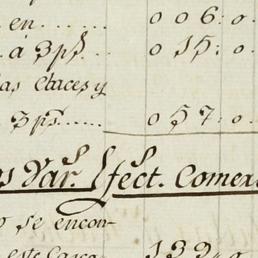 en..... 006:0.
a 3ps... 015:0.
las claces y
3ps..... 057:0.
s Vars. Efect. Comer
o se encon-
este Carga 122 0